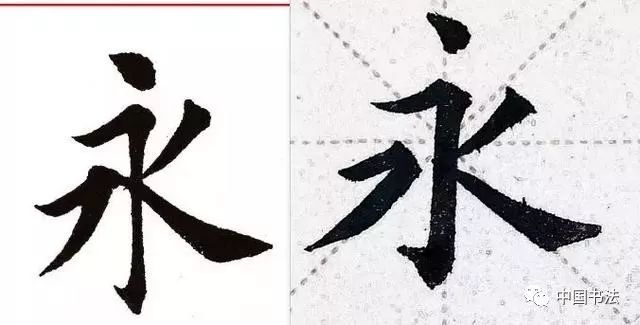 永 永
中国书法